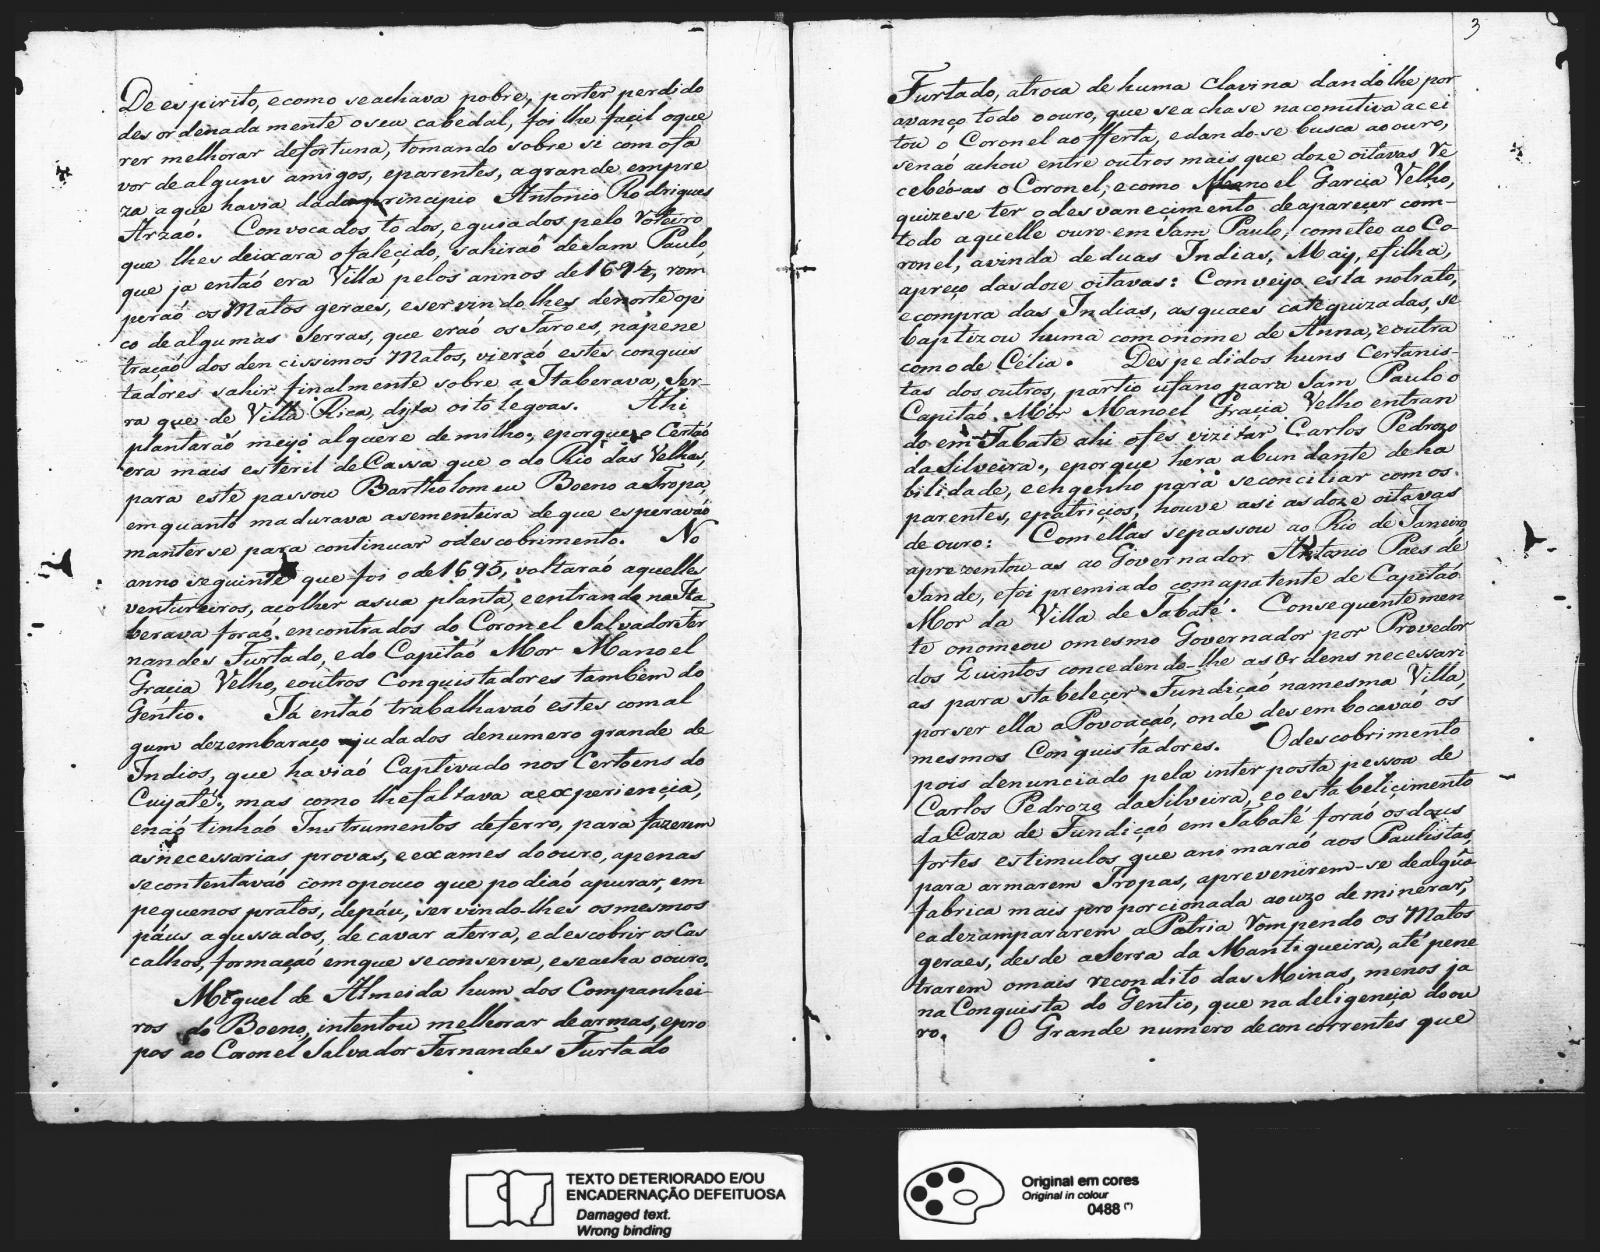 De espirito, e como se achava pobre, por ter perdido
desordenadamente o seu cabedal, foi lhe façil o que
rer melhorar de fortuna, tomando sobre si com o fa
vor de alguns amigos, e parentes, a grande empre
za a que havia dado principio Antonio Rodrigues
Arzaõ. Convocados todos, e guiados pelo Roteiro
que lhes deixara o faleçido, sahiraõ de Sam Paulo,
que ja entaõ era Villa pelos annos de 1694, rom
peraõ os Matos geraes, e servindo lhes de norte o pi
co de algumas Serras, que eraõ os Faroes, na pene
traçaõ dos dencissimos Matos, vieraõ estes conquis
tadores sahir finalmente sobre a Itaberava, Ser-
ra que de Villa Rica, dista oito legoas. Ahi
plantaraõ meyo alquere de milho; e porque o Certaõ
era mais esteril de Cassa que o do Rio das Velhas,
para este passou Bartholomeu Boeno a Tropa,
em quanto madurava a sementeira de que esperavaõ
manterse para continuar o descobrimento. No
anno seguinte que foi o de 1695, voltaraõ aquelles
ventureiros, a colher a sua planta, e entrando na Ita
berava foraõ encontrados do Coronel Salvador Fer
nandes Furtado, e do Capitaõ Mor Manoel
Gracia Velho, e outros Conquistadores tambem do
Gentio. Já entaõ trabalhavaõ estes com al
gum dezembaraço ajudados de numero grande de
Indios, que haviaõ Captivado nos Certoens do
Cuyaté; mas como lhe faltava a experiençia,
e naõ tinhaõ Instrumentos de ferro, para fazerem
as necessarias provas, e exames do ouro, apenas
se contentavaõ com o pouco que podiaõ apurar, em
pequenos pratos, de páu, servindo-lhes os mesmos
páus agussados, de cavar a terra, e descobrir os Cas
calhos, formaçaõ em que se conserva, e se acha o ouro.
Miguel de Almeida hum dos Companhei-
ros do Boeno, intentou melhorar de armas, e pro
pos ao Coronel Salvador Fernandes Furtado
3
Furtado, a troca de huma Clavina dando lhe por
avanço todo o ouro, que se achase na comitiva acei
tou o Coronel a offerta, e dando-se busca ao ouro,
senaõ achou entre outros mais que doze oitavas Re
cebéo-as o Coronel, e como Manoel Garcia Velho,
quizese ter o desvaneçimento de apareçer com-
todo aquelle ouro em Sam Paulo, cometeo ao Co-
ronel, a vinda de duas Indias, May, e filha,
a preço das doze oitavas: Com veyo esta no trato,
e compra das Indias, as quaes catequizadas, se
baptizou huma com o nome de Anna, e outra
com o de Célia. Despedidos huns Certanis-
tas dos outros, partio ufano para Sam Paulo o
Capitaõ Mór Manoel Gracia Velho entran
do em Tabate ahi o fes vizitar Carlos Pedrozo
da Silveira; e porque hera abundante de ha
bilidade, e engenho para se conciliar com os
parentes, e patriçios, houve a si as doze oitavas
de ouro: Com ellas se passou ao Rio de Janeiro,
aprezentou-as ao Governador Antonio Paes de
Sande, e foi premiado com a patente de Capitaõ
Mor da Villa de Tabaté. Consequentemen
te o nomeou o mesmo Governador por Provedor
dos Quintos concedendo-lhe as Ordens necessari
as para stabeleçer Fundiçaõ na mesma Villa,
por ser ella a Povoaçaõ, onde desembocavaõ os
mesmos Conquistadores. O descobrimento
pois denunciado pela interposta pessoa de
Carlos Pedrozo da Silveira, e o estabeliçimento
da Caza de Fundiçaõ em Tabaté foraõ os dous
fortes estimulos que animaraõ aos Paulistas,
para armarem Tropas, a prevenirem-se de algũa
fabrica mais proporcionada ao uzo de minerar,
e a dezampararem a Patria Rompendo os Matos
geraes, desde a Serra da Mantiqueira, até pene
trarem o mais recondito das Minas, menos ja
na Conquista do Gentio, que na deligençia do ou
ro. O Grande numero de concorrentes que
TEXTO DETERIORADO E/OU
ENCADERNAÇÃO DEFEITUOSA
Damaged text.
Wrong binding
Original em cores
Original in colour
0488 (*)